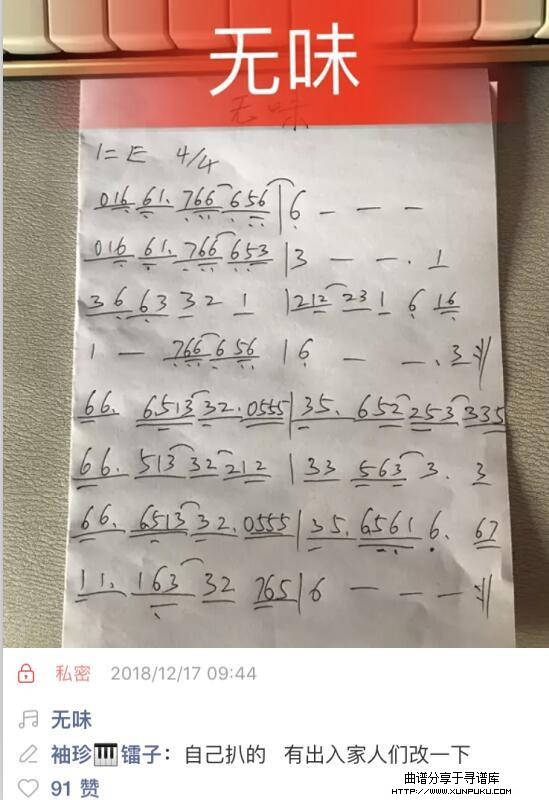 无味
无味
1=E 4/4
016 61. 766 656 | 6 — — —
016 61. 766 653 | 3 — — . 1
36 63 32 1 | 212 23 1 6 16
1 — 766 656 | 6 — — . 3 :||
66. 6513 32. 0555 | 35. 652 253 335
66. 513 32 212 | 33 563 3. 3
66. 6513 32. 0555 | 35. 6561 6. 67
11. 163 32 765 | 6 — — — :||
私密 2018/12/17 09:44
无味
袖珍🎹镭子：自己扒的 有出入家人们改一下
91 赞
曲谱分享于寻谱库
HTTP://WWW.XUNPUKU.COM